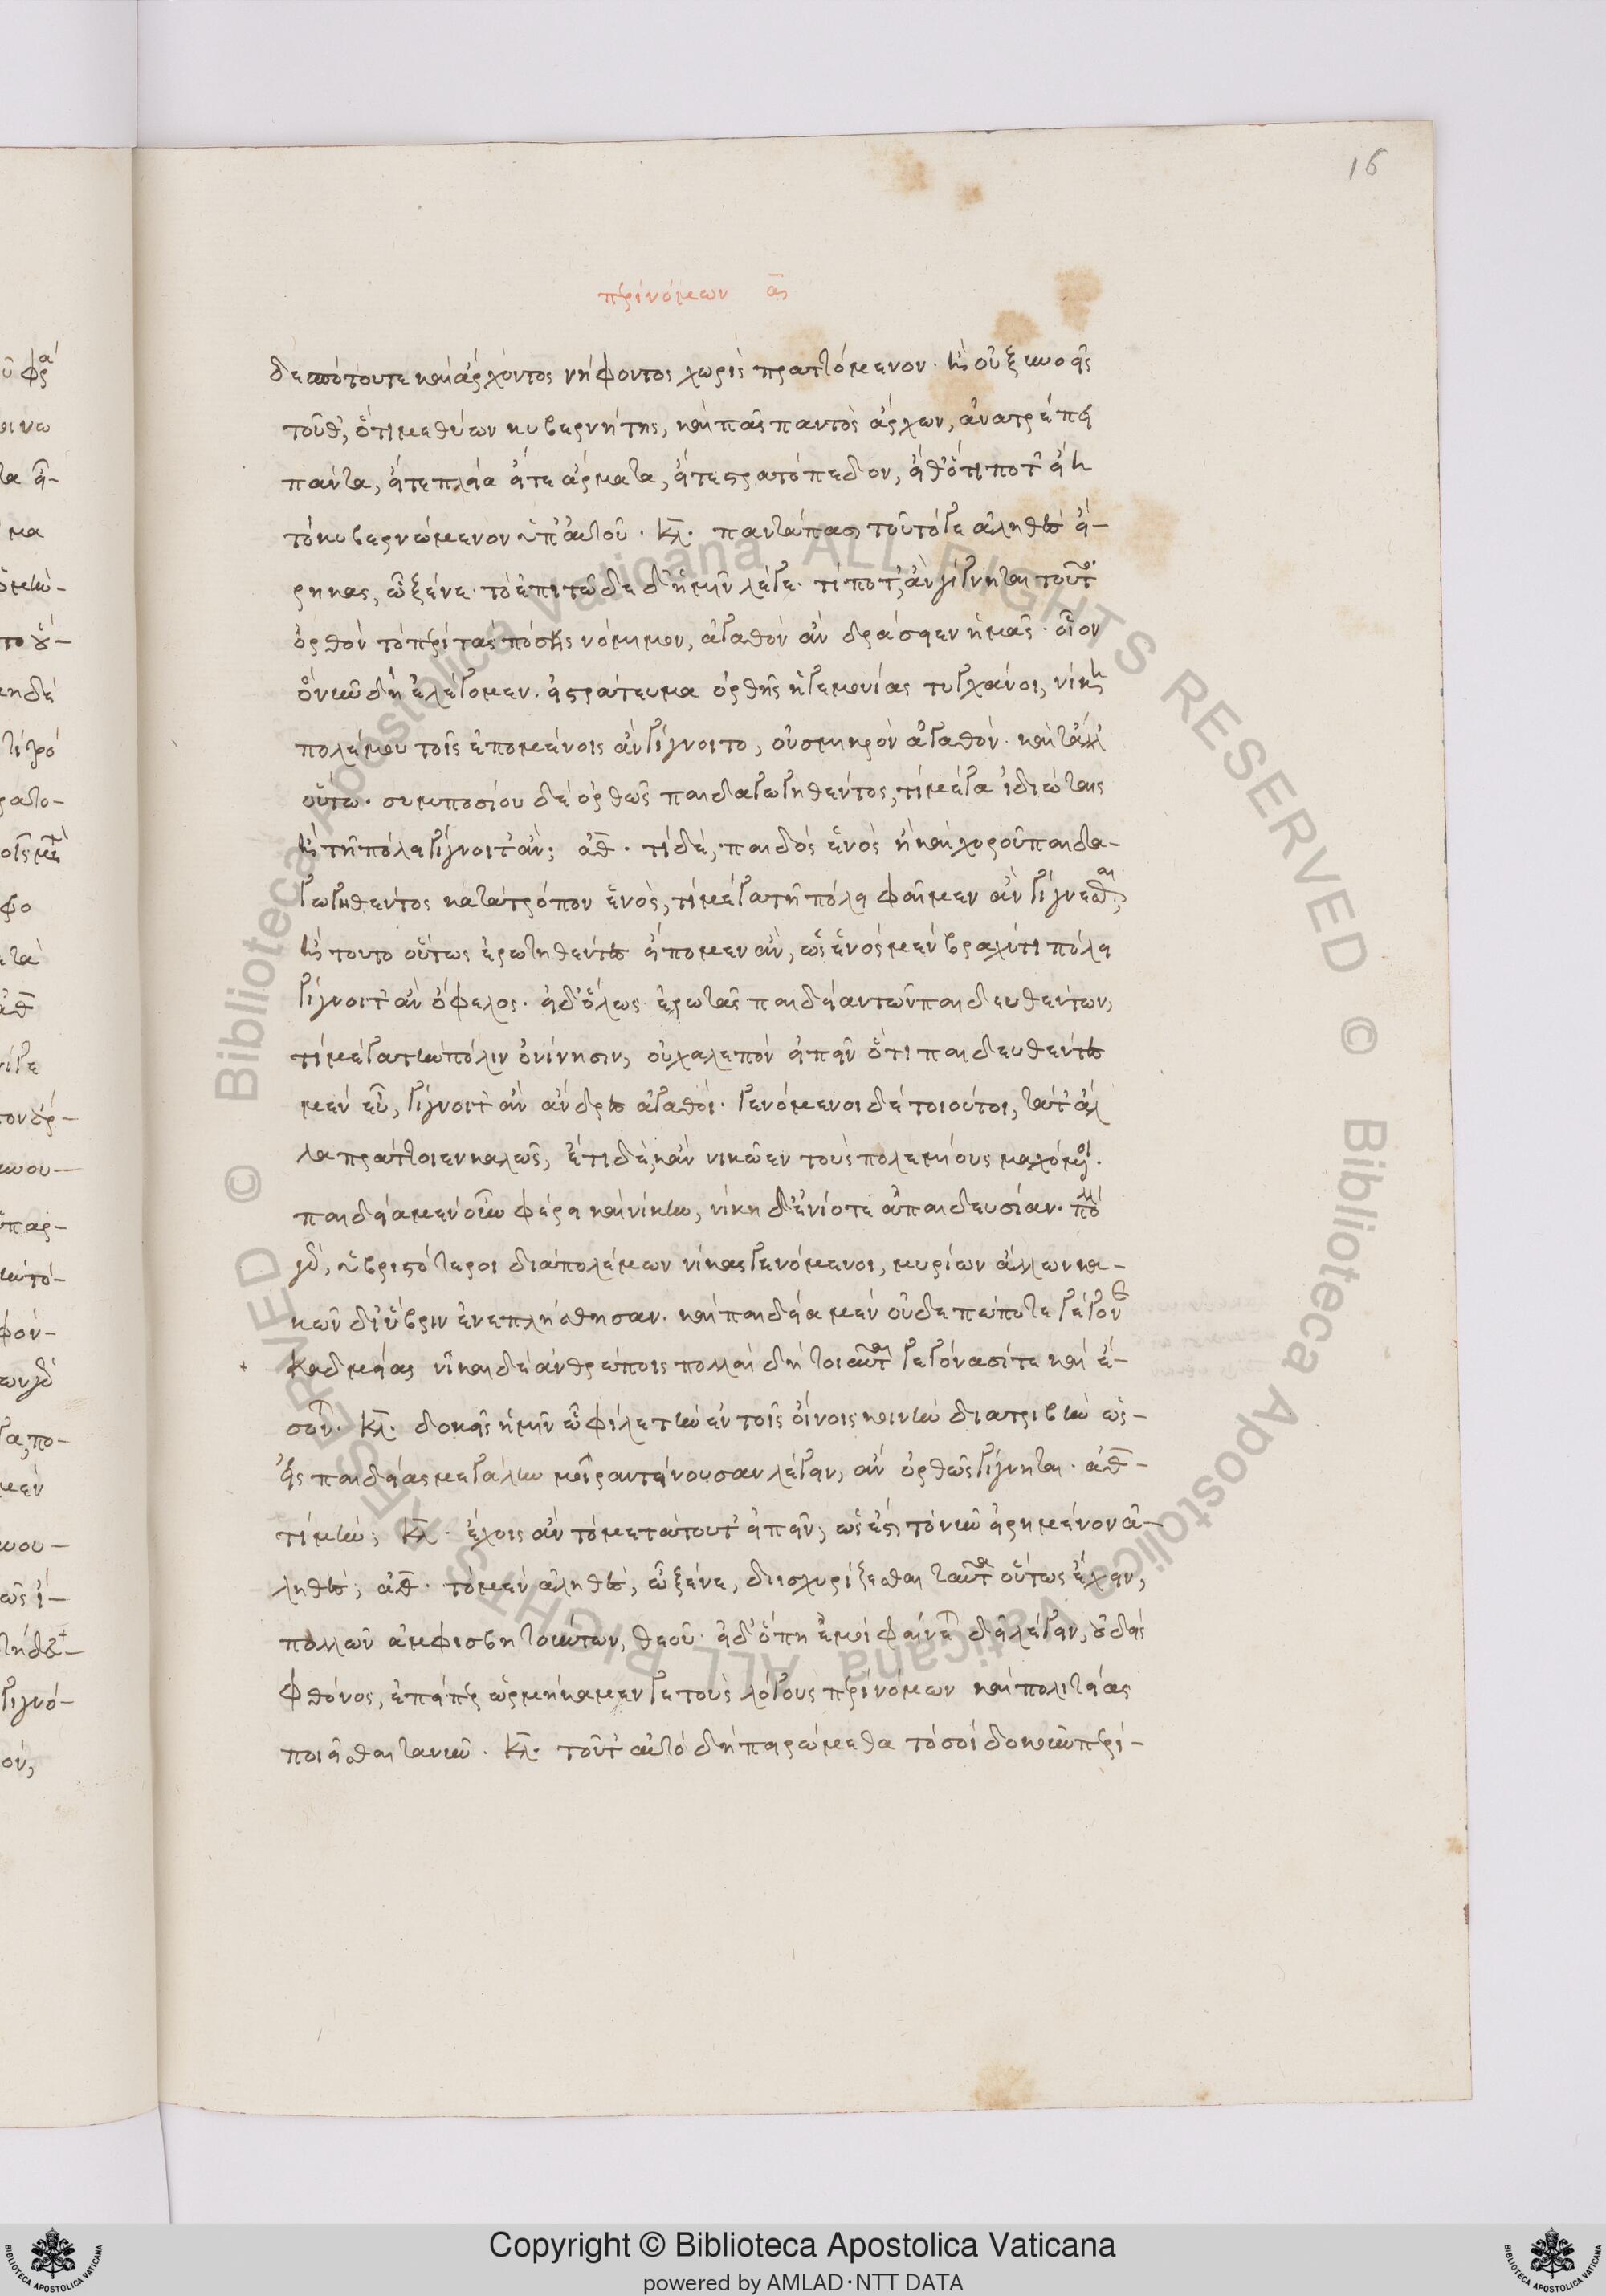 16
περὶ νόμων α̅ς
δεσπότου τε καὶ ἄρχοντος νήφοντος χωρὶς πραττόμενον. ἢ οὐ ξυνοεῖς
τοῦθ', ὅτι μεθύων κυβερνήτης, καὶ πᾶς παντὸς ἄρχων, ἀνατρέπει
πάντα, εἴτε πλοῖα εἴτε ἅρματα, εἴτε στρατόπεδον, εἴθ' ὅ τι ποτ' εἴη
τὸ κυβερνώμενον ὑπ' αὐτοῦ. Κλ. παντάπασι τοῦτό γε ἀληθὲς εἴ-
ρηκας, ὦ ξένε. τὸ ἐπὶ τῶδε δ' ἡμῖν λέγε. τί ποτ', ἂν γίγνηται τοῦτ'
ὀρθὸν τὸ περὶ τὰς πόσεις νόμιμον, ἀγαθὸν ἂν δράσειεν ἡμᾶς. οἷον
ὃ νῦν δὴ ἐλέγομεν. εἰ στράτευμα ὀρθῆς ἡγεμονίας τυγχάνοι, νίκη
πολέμου τοῖς ἑπομένοις ἂν γίγνοιτο, οὐ σμικρὸν ἀγαθόν. καὶ τἄλλ'
οὕτω. συμποσίου δὲ ὀρθῶς παιδαγωγηθέντος, τί μέγα ἰδιώταις
ἢ τῇ πόλει γίγνοιτ' ἄν; ἀθ. τί δέ, παιδὸς ἑνὸς ἢ καὶ χοροῦ παιδα-
γωγηθέντος κατὰ τρόπον ἑνός, τί μέγα τῇ πόλει φαῖμεν ἂν γίγνεσθαι;
ἢ τουτο οὕτως ἐρωτηθέντες εἴποιμεν ἄν, ὡς ἑνὸς μὲν βραχύ τι πόλει
γίγνοιτ' ἂν ὄφελος. εἰ δ' ὅλως ἐρωτᾷς παιδείαν τῶν παιδευθέντων,
τί μέγα τὴν πόλιν ὀνίνησιν, οὐ χαλεπὸν εἰπεῖν ὅτι παιδευθέντες
μὲν εὖ, γίγνοιντ' ἂν ἄνδρες ἀγαθοί. γενόμενοι δὲ τοιοῦτοι, τά τ' ἄλ
λα πράττοιεν καλῶς, ἔτι δὲ, κἂν νικῷεν τοὺς πολεμίους μαχόμενοι.
παιδεία μὲν οὖν φέρει καὶ νίκην, νίκη δ' ἐνίοτε ἀπαιδευσίαν. πολλοὶ
γὰρ, ὑβριστότεροι διὰ πολέμων νίκας γενόμενοι, μυρίων ἄλλων κα-
κῶν δι' ὕβριν ἐνεπλήσθησαν. καὶ παιδεία μὲν οὐδεπώποτε γέγονε
καδμεία, νῖκαι δὲ ἀνθρώποις πολλαὶ δὴ τοιαῦται γεγόνασί τε καὶ ἔ-
σονται. Κλ. δοκεῖς ἡμῖν ὦ φίλε τὴν ἐν τοῖς οἴνοις κοινὴν διατριβὴν ὡς-
εἰς παιδείας μεγάλην μοῖραν τείνουσαν λέγειν, ἂν ὀρθῶς γίγνηται. ἀθ-
τί μήν; Κλ. ἔχοις ἂν τὸ μετὰ τοῦτ' εἰπεῖν, ὡς ἐστὶ τὸ νῦν εἰρημένον ἀ-
ληθές; ἀθ. τὸ μὲν ἀληθές, ὦ ξένε, διισχυρίζεσθαι ταῦτα οὕτως ἔχειν,
πολλῶν ἀμφισβητούντων, θεοῦ. εἰ δ' ὅπῃ ἐμοὶ φαίνεται δεῖ λέγειν, οὐδεὶς
φθόνος, ἐπείπερ ὡρμήκαμέν γε τοὺς λόγους περὶ νόμων καὶ πολιτείας
ποιεῖσθαι τανῦν. Κλ. τοῦτ' αὐτὸ δὴ πειρώμεθα τὸ σοὶ δοκοῦν περὶ-
Copyright © Biblioteca Apostolica Vaticana
powered by AMLAD·NTT DATA